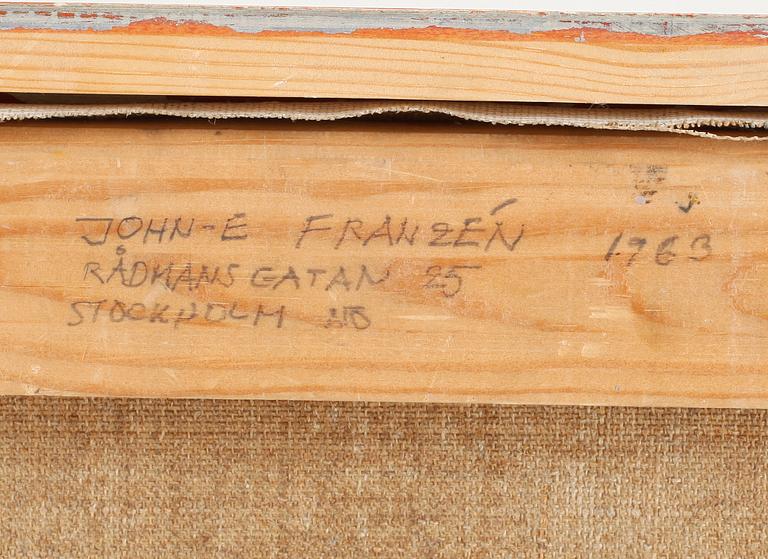 JOHN-E FRANZÉN 1963
RÅDMANSGATAN 25
STOCKHOLM NÖ